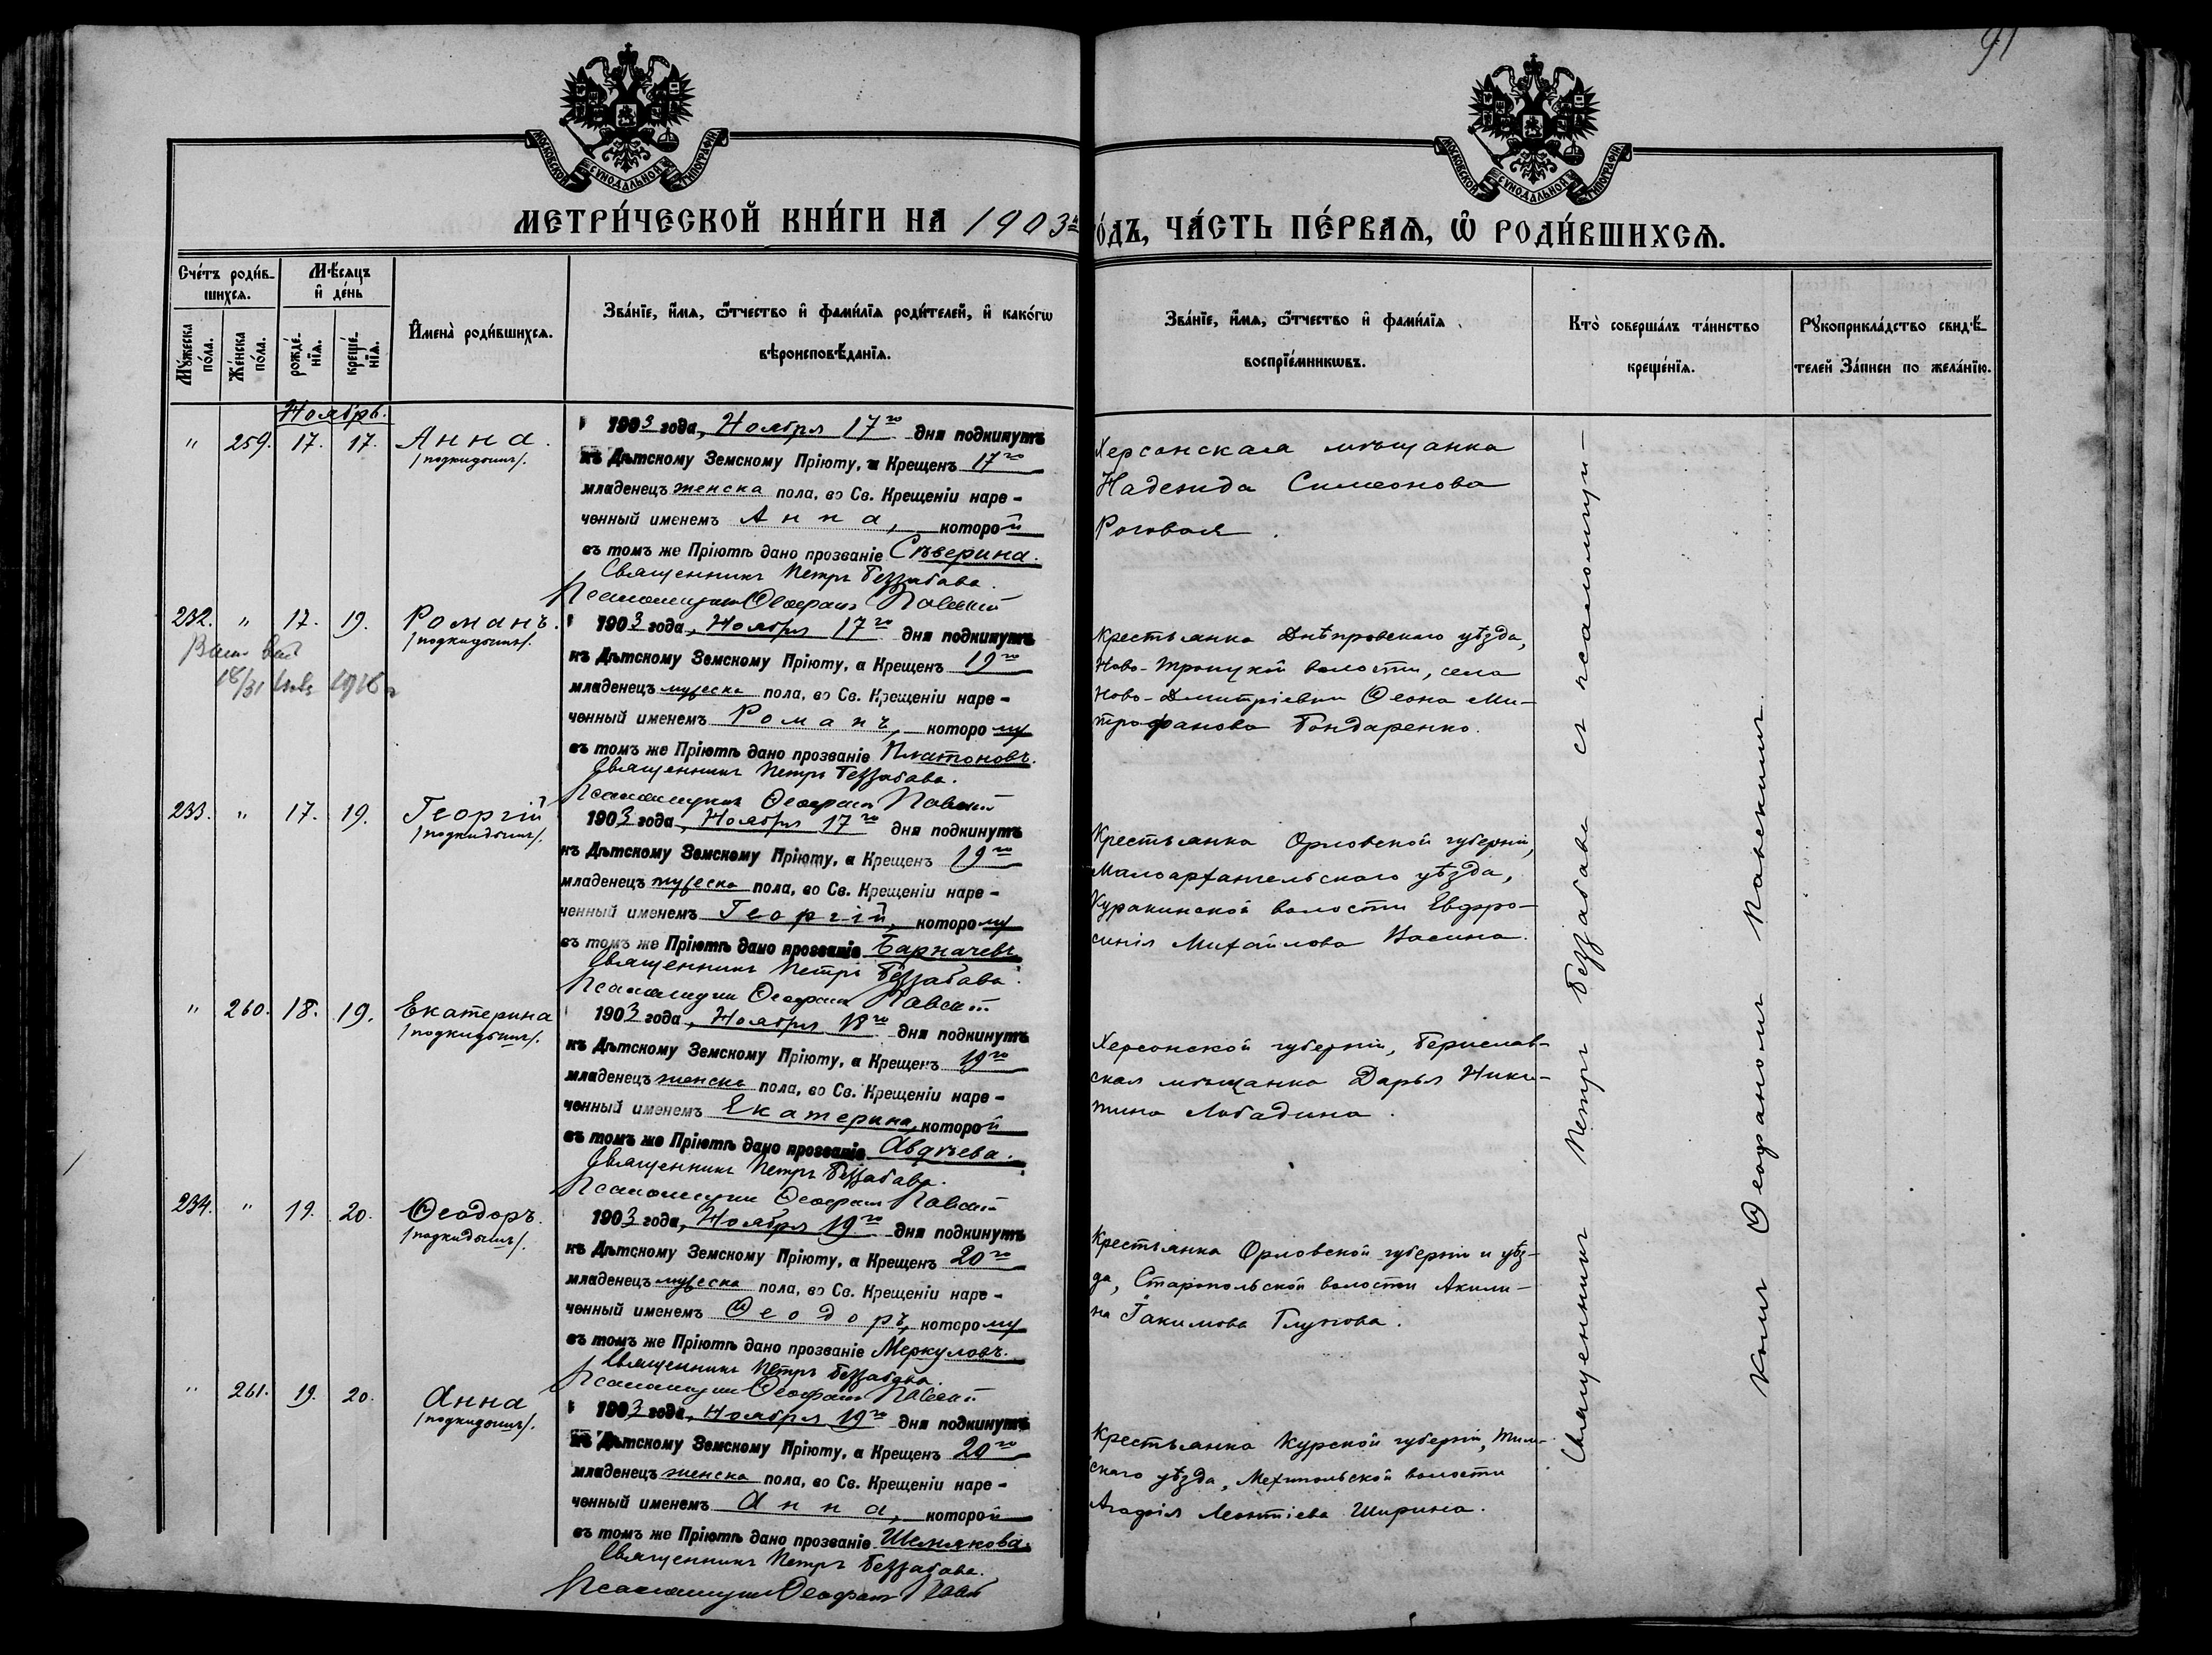 91
МОСКОВСКОЙ СѴНОДАЛЬНОЙ ТИПОГРАФІИ
МОСКОВСКОЙ СѴНОДАЛЬНОЙ ТИПОГРАФІИ
МЕТРИ́ЧЕСКОЙ КНИ́ГИ НА 1903й
О́ДЪ, ЧА́СТЬ ПЕ́РВАѦ, Ѽ РОДИ́ВШИХСѦ.
Сче́тъ роди́в-
шихсѧ.
Мꙋ́жеска по́ла.
Же́нска по́ла.
Мѣ́сѧцъ
и҆ де́нь
рожде́нїѧ.
креще́нїѧ.
И҆мена̀ роди́вшихсѧ.
Зва́нїе, и҆́мѧ, ѻ҆́тчество и҆ фами́лїѧ роди́телей, и҆ како́гѡ
вѣроисповѣ́данїѧ.
Зва́нїе, и҆́мѧ, ѻ҆́тчество и҆ фами́лїѧ
воспрїе́мникѡвъ.
Кто̀ соверша́лъ та́инство
креще́нїѧ.
Рꙋкоприкла́дство свидѣ́-
телей За́писи по жела́нїю.
Ноябрь.
" 259. 17. 17. Анна.
/подкидышъ/.
1903 года, Ноября 17го дня подкинутъ
къ Дѣтскому Земскому Пріюту, а Крещенъ 17го
младенецъ женска пола, во Св. Крещеніи наре-
ченный именемъ Анна, которой
въ томъ же Пріютѣ дано прозваніе Сѣверина.
Священникъ Петръ Беззабава.
Псаломщикъ Ѳеофанъ Павскій
Херсонская мѣщанка
Надежда Симеонова
Роговая.
232. " 17. 19. Романъ.
/подкидышъ/.
18/31 1918 г
1903 года, Ноября 17го дня подкинутъ
къ Дѣтскому Земскому Пріюту, а Крещенъ 19го
младенецъ мужеска пола, во Св. Крещеніи наре-
ченный именемъ Романъ, которому
въ томъ же Пріютѣ дано прозваніе Платоновъ.
Священникъ Петръ Беззабава.
Псаломщикъ Ѳеофанъ Павскій
Крестьянка Днѣпровскаго уѣзда,
Ново-Троицкой волости, села
Ново-Дмитріевки Ѳеона Ми-
трофанова Бондаренко.
233. " 17. 19. Георгій
/подкидышъ/.
1903 года, Ноября 17го дня подкинутъ
къ Дѣтскому Земскому Пріюту, а Крещенъ 19го
младенецъ мужеска пола, во Св. Крещеніи наре-
ченный именемъ Георгій, которому
въ томъ же Пріютѣ дано прозваніе Барначевъ.
Священникъ Петръ Беззабава.
Псаломщикъ Ѳеофанъ Павскій
Крестьянка Орловской губерніи,
Малоархангельскаго уѣзда,
Куракинской волости Евфро-
синія Михайлова Васина.
" 260. 18. 19. Екатерина
/подкидышъ/.
1903 года, Ноября 18го дня подкинутъ
къ Дѣтскому Земскому Пріюту, а Крещенъ 19го
младенецъ женска пола, во Св. Крещеніи наре-
ченный именемъ Екатерина, которой
въ томъ же Пріютѣ дано прозваніе Авдѣева.
Священникъ Петръ Беззабава.
Псаломщикъ Ѳеофанъ Павскій
Херсонской губерніи, Берислав-
ская мѣщанка Дарья Ники-
тина Лободина.
234. " 19. 20. Ѳеодоръ.
/подкидышъ/.
1903 года, Ноября 19го дня подкинутъ
къ Дѣтскому Земскому Пріюту, а Крещенъ 20го
младенецъ мужеска пола, во Св. Крещеніи наре-
ченный именемъ Ѳеодоръ, которому
въ томъ же Пріютѣ дано прозваніе Меркуловъ.
Священникъ Петръ Беззабава.
Псаломщикъ Ѳеофанъ Павскій
Крестьянка Орловской губерніи и уѣз-
да, Старопольской волости Акили-
на Іакимова Глухова.
" 261. 19. 20. Анна
/подкидышъ/.
1903 года, Ноября 19го дня подкинутъ
къ Дѣтскому Земскому Пріюту, а Крещенъ 20го
младенецъ женска пола, во Св. Крещеніи наре-
ченный именемъ Анна, которой
въ томъ же Пріютѣ дано прозваніе Шемякова.
Священникъ Петръ Беззабава.
Псаломщикъ Ѳеофанъ Павскій
Крестьянка Курской губерніи, Тим-
скаго уѣзда, волости
Агафія Леонтіева Ширина.
Священникъ Петръ Беззабава съ псаломщи-
комъ Ѳеофаномъ Павскимъ.